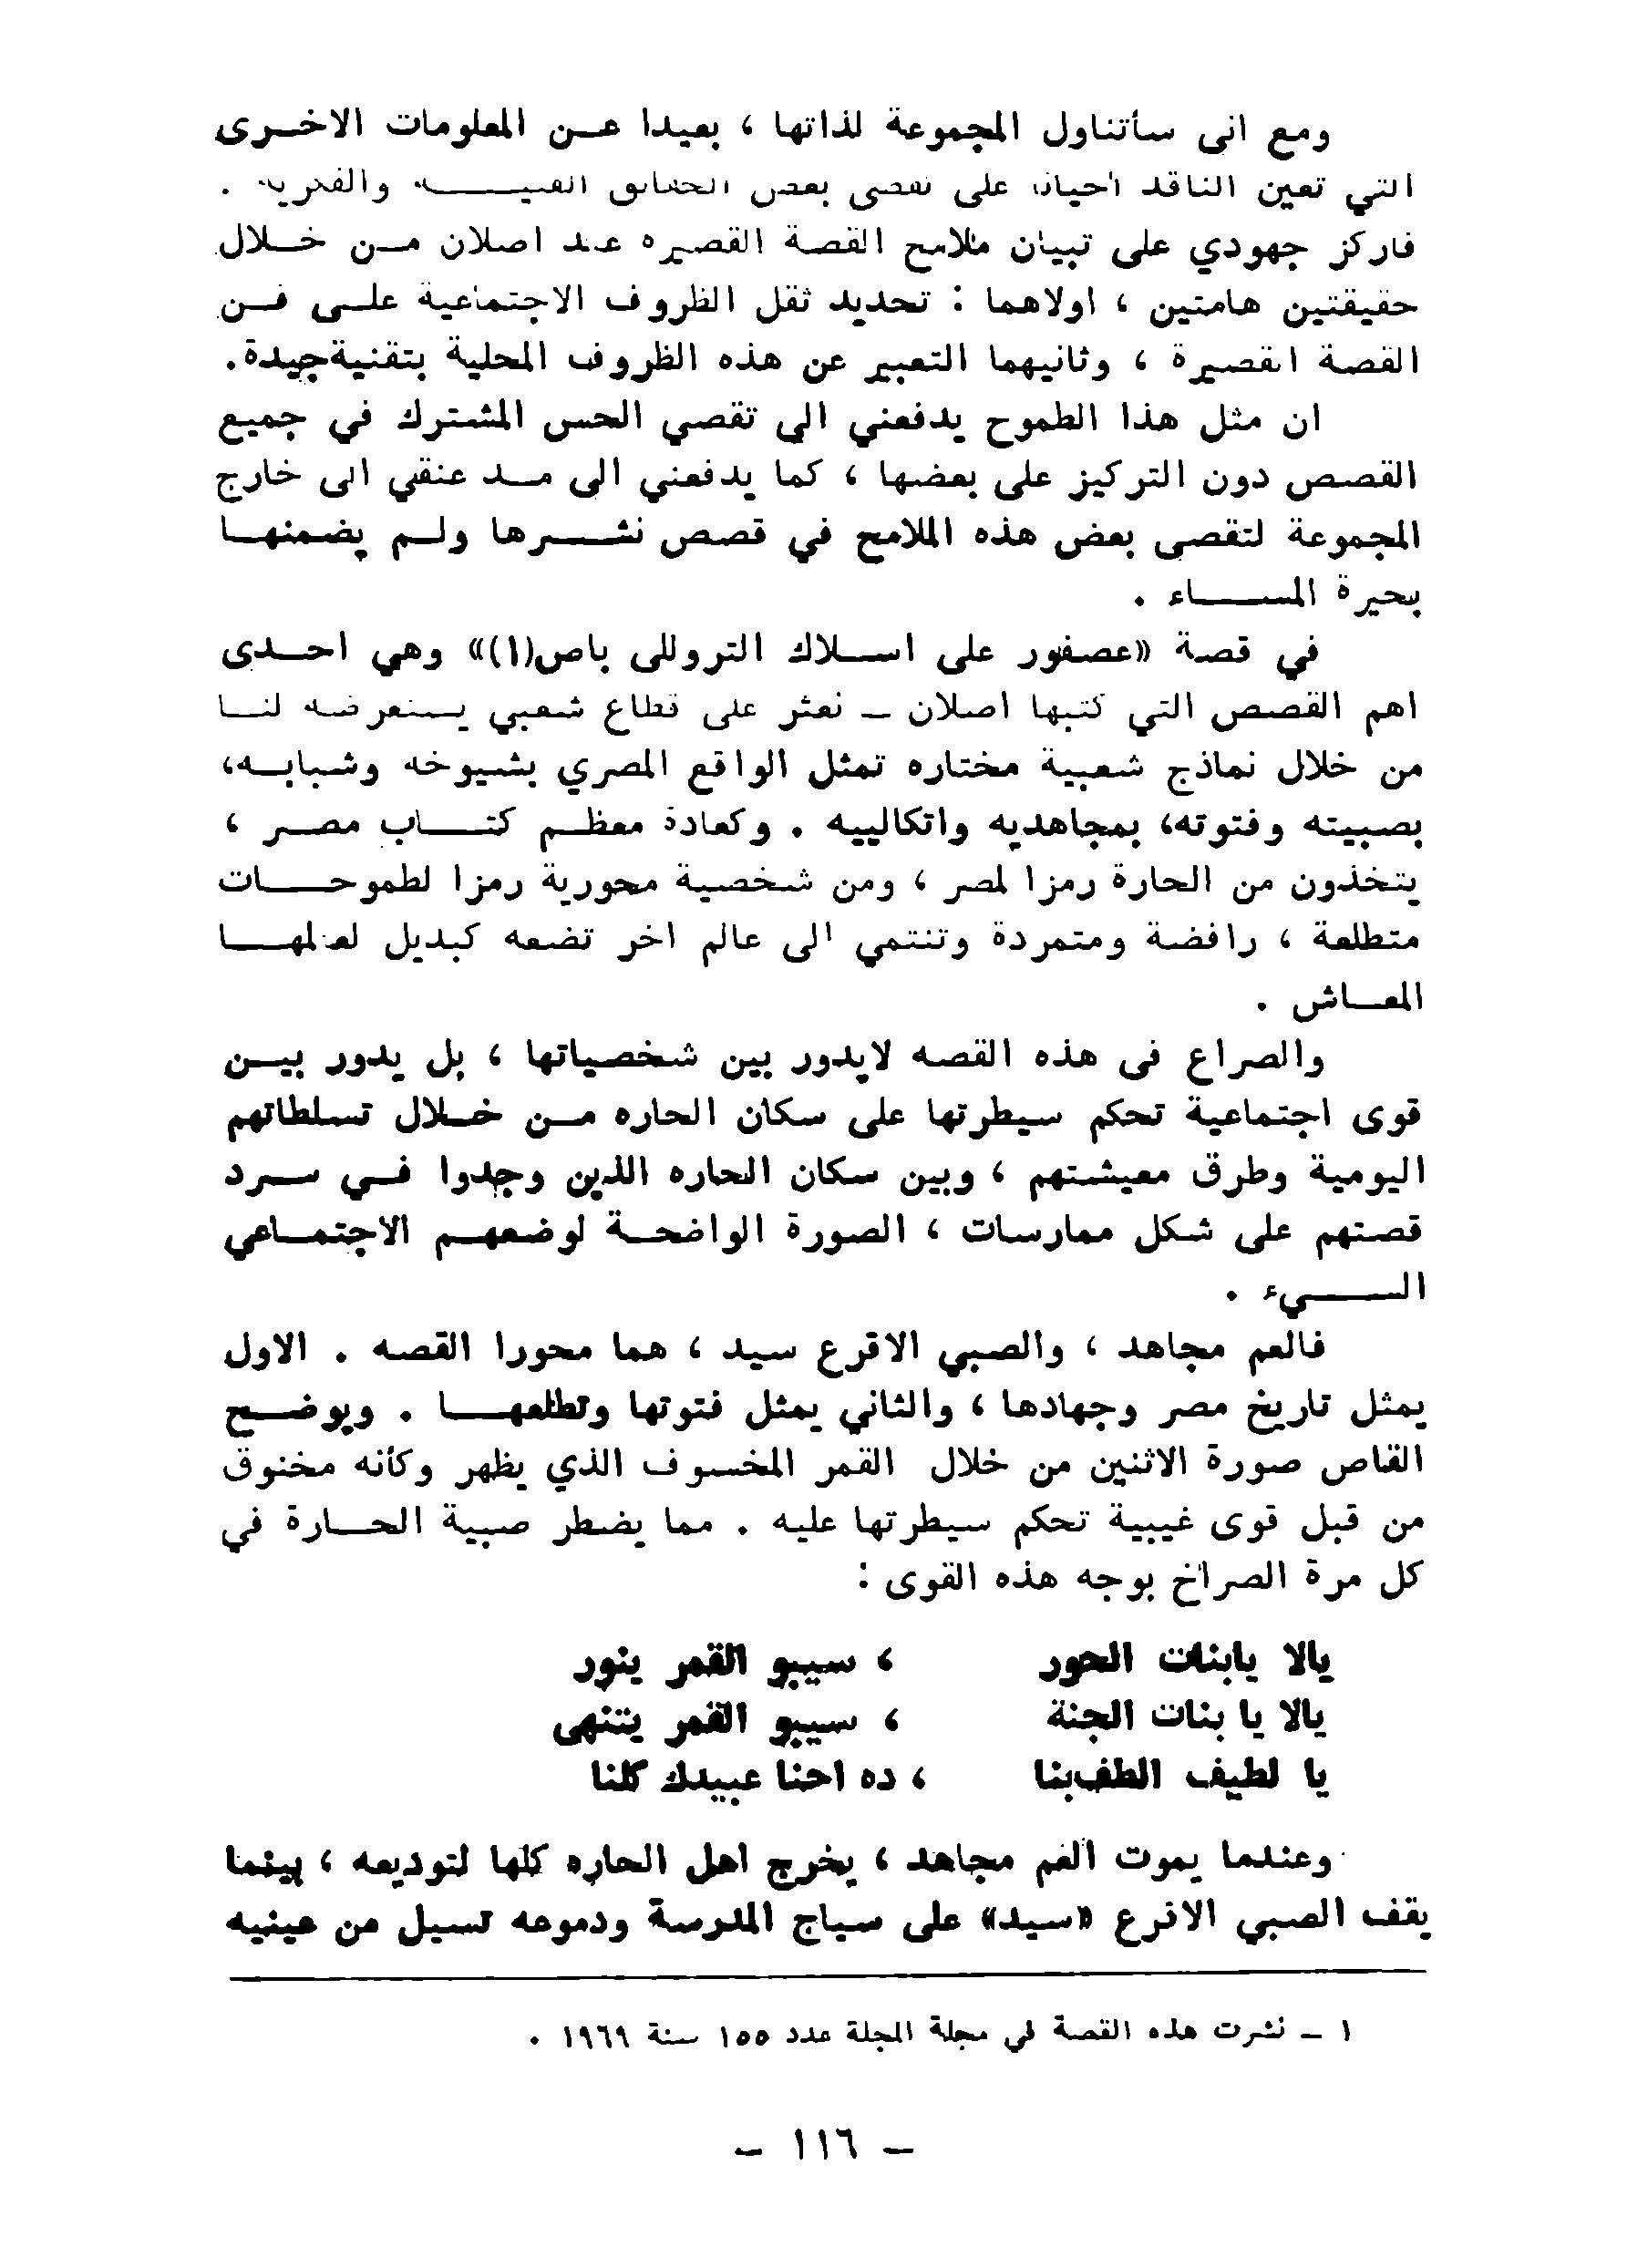 ومع انى سأتناول المجموعة لذاتها ، بعيدا عن المعلومات الاخرى
التي تعين الناقد احيانا على تقصى بعض الحقائق الفنية والفكرية .
فاركز جهودي على تبيان ملامح القصة القصيره عند اصلان من خلال
حقيقتين هامتين ، اولاهما : تحديد ثقل الظروف الاجتماعية على فن
القصة القصيرة ، وثانيهما التعبير عن هذه الظروف المحلية بتقنية جيدة.
ان مثل هذا الطموح يدفعني الى تقصي الحس المشترك في جميع
القصص دون التركيز على بعضها ، كما يدفعني الى مد عنقي الى خارج
المجموعة لتقصى بعض هذه الملامح في قصص نشرها ولم يضمنها
بحيرة المساء .
في قصة «عصفور على اسلاك التروللى باص(١)» وهي احدى
اهم القصص التي كتبها اصلان – نعثر على قطاع شعبي يستعرضه لنا
من خلال نماذج شعبية مختاره تمثل الواقع المصري بشيوخه وشبابه،
بصبيته وفتوته، بمجاهديه واتكالييه . وكعادة معظم كتاب مصر ،
يتخذون من الحارة رمزا لمصر ، ومن شخصية محورية رمزا لطموحات
متطلعة ، رافضة ومتمردة وتنتمي الى عالم اخر تضعه كبديل لعالمها
المعاش .
والصراع فى هذه القصه لايدور بين شخصياتها ، بل يدور بين
قوى اجتماعية تحكم سيطرتها على سكان الحاره من خلال تسلطاتهم
اليومية وطرق معيشتهم ، وبين سكان الحاره الذين وجدوا في سرد
قصتهم على شكل ممارسات ، الصورة الواضحة لوضعهم الاجتماعي
السيء .
فالعم مجاهد ، والصبي الاقرع سيد ، هما محورا القصه . الاول
يمثل تاريخ مصر وجهادها ، والثاني يمثل فتوتها وتطلعها . ويوضح
القاص صورة الاثنين من خلال القمر المخسوف الذي يظهر وكأنه مخنوق
من قبل قوى غيبية تحكم سيطرتها عليه . مما يضطر صبية الحارة في
كل مرة الصراخ بوجه هذه القوى :
يالا يابنات الحور ، سيبو القمر ينور
يالا يا بنات الجنة ، سيبو القمر يتنهى
يا لطيف الطف بنا ، ده احنا عبيدك كلنا
وعندما يموت العم مجاهد ، يخرج اهل الحاره كلها لتوديعه ، بينما
يقف الصبي الاقرع «سيد» على سياج المدرسة ودموعه تسيل من عينيه
١ – نشرت هذه القصة في مجلة المجلة عدد ١٥٥ سنة ١٩٦٩ .
– ١١٦ –